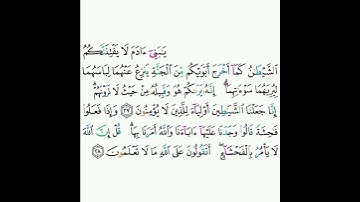 يَـٰبَنِىٓ ءَادَمَ لَا يَفْتِنَنَّكُمُ
ٱلشَّيْطَـٰنُ كَمَآ أَخْرَجَ أَبَوَيْكُم مِّنَ ٱلْجَنَّةِ يَنزِعُ عَنْهُمَا لِبَاسَهُمَا
لِيُرِيَهُمَا سَوْءَٰتِهِمَآ ۗ إِنَّهُۥ يَرَىٰكُمْ هُوَ وَقَبِيلُهُۥ مِنْ حَيْثُ لَا تَرَوْنَهُمْ ۗ
إِنَّا جَعَلْنَا ٱلشَّيَـٰطِينَ أَوْلِيَآءَ لِلَّذِينَ لَا يُؤْمِنُونَ ٢٧ وَإِذَا فَعَلُوا۟
فَـٰحِشَةً قَالُوا۟ وَجَدْنَا عَلَيْهَآ ءَابَآءَنَا وَٱللَّهُ أَمَرَنَا بِهَا ۗ قُلْ إِنَّ ٱللَّهَ
لَا يَأْمُرُ بِٱلْفَحْشَآءِ ۖ أَتَقُولُونَ عَلَى ٱللَّهِ مَا لَا تَعْلَمُونَ ٢٨